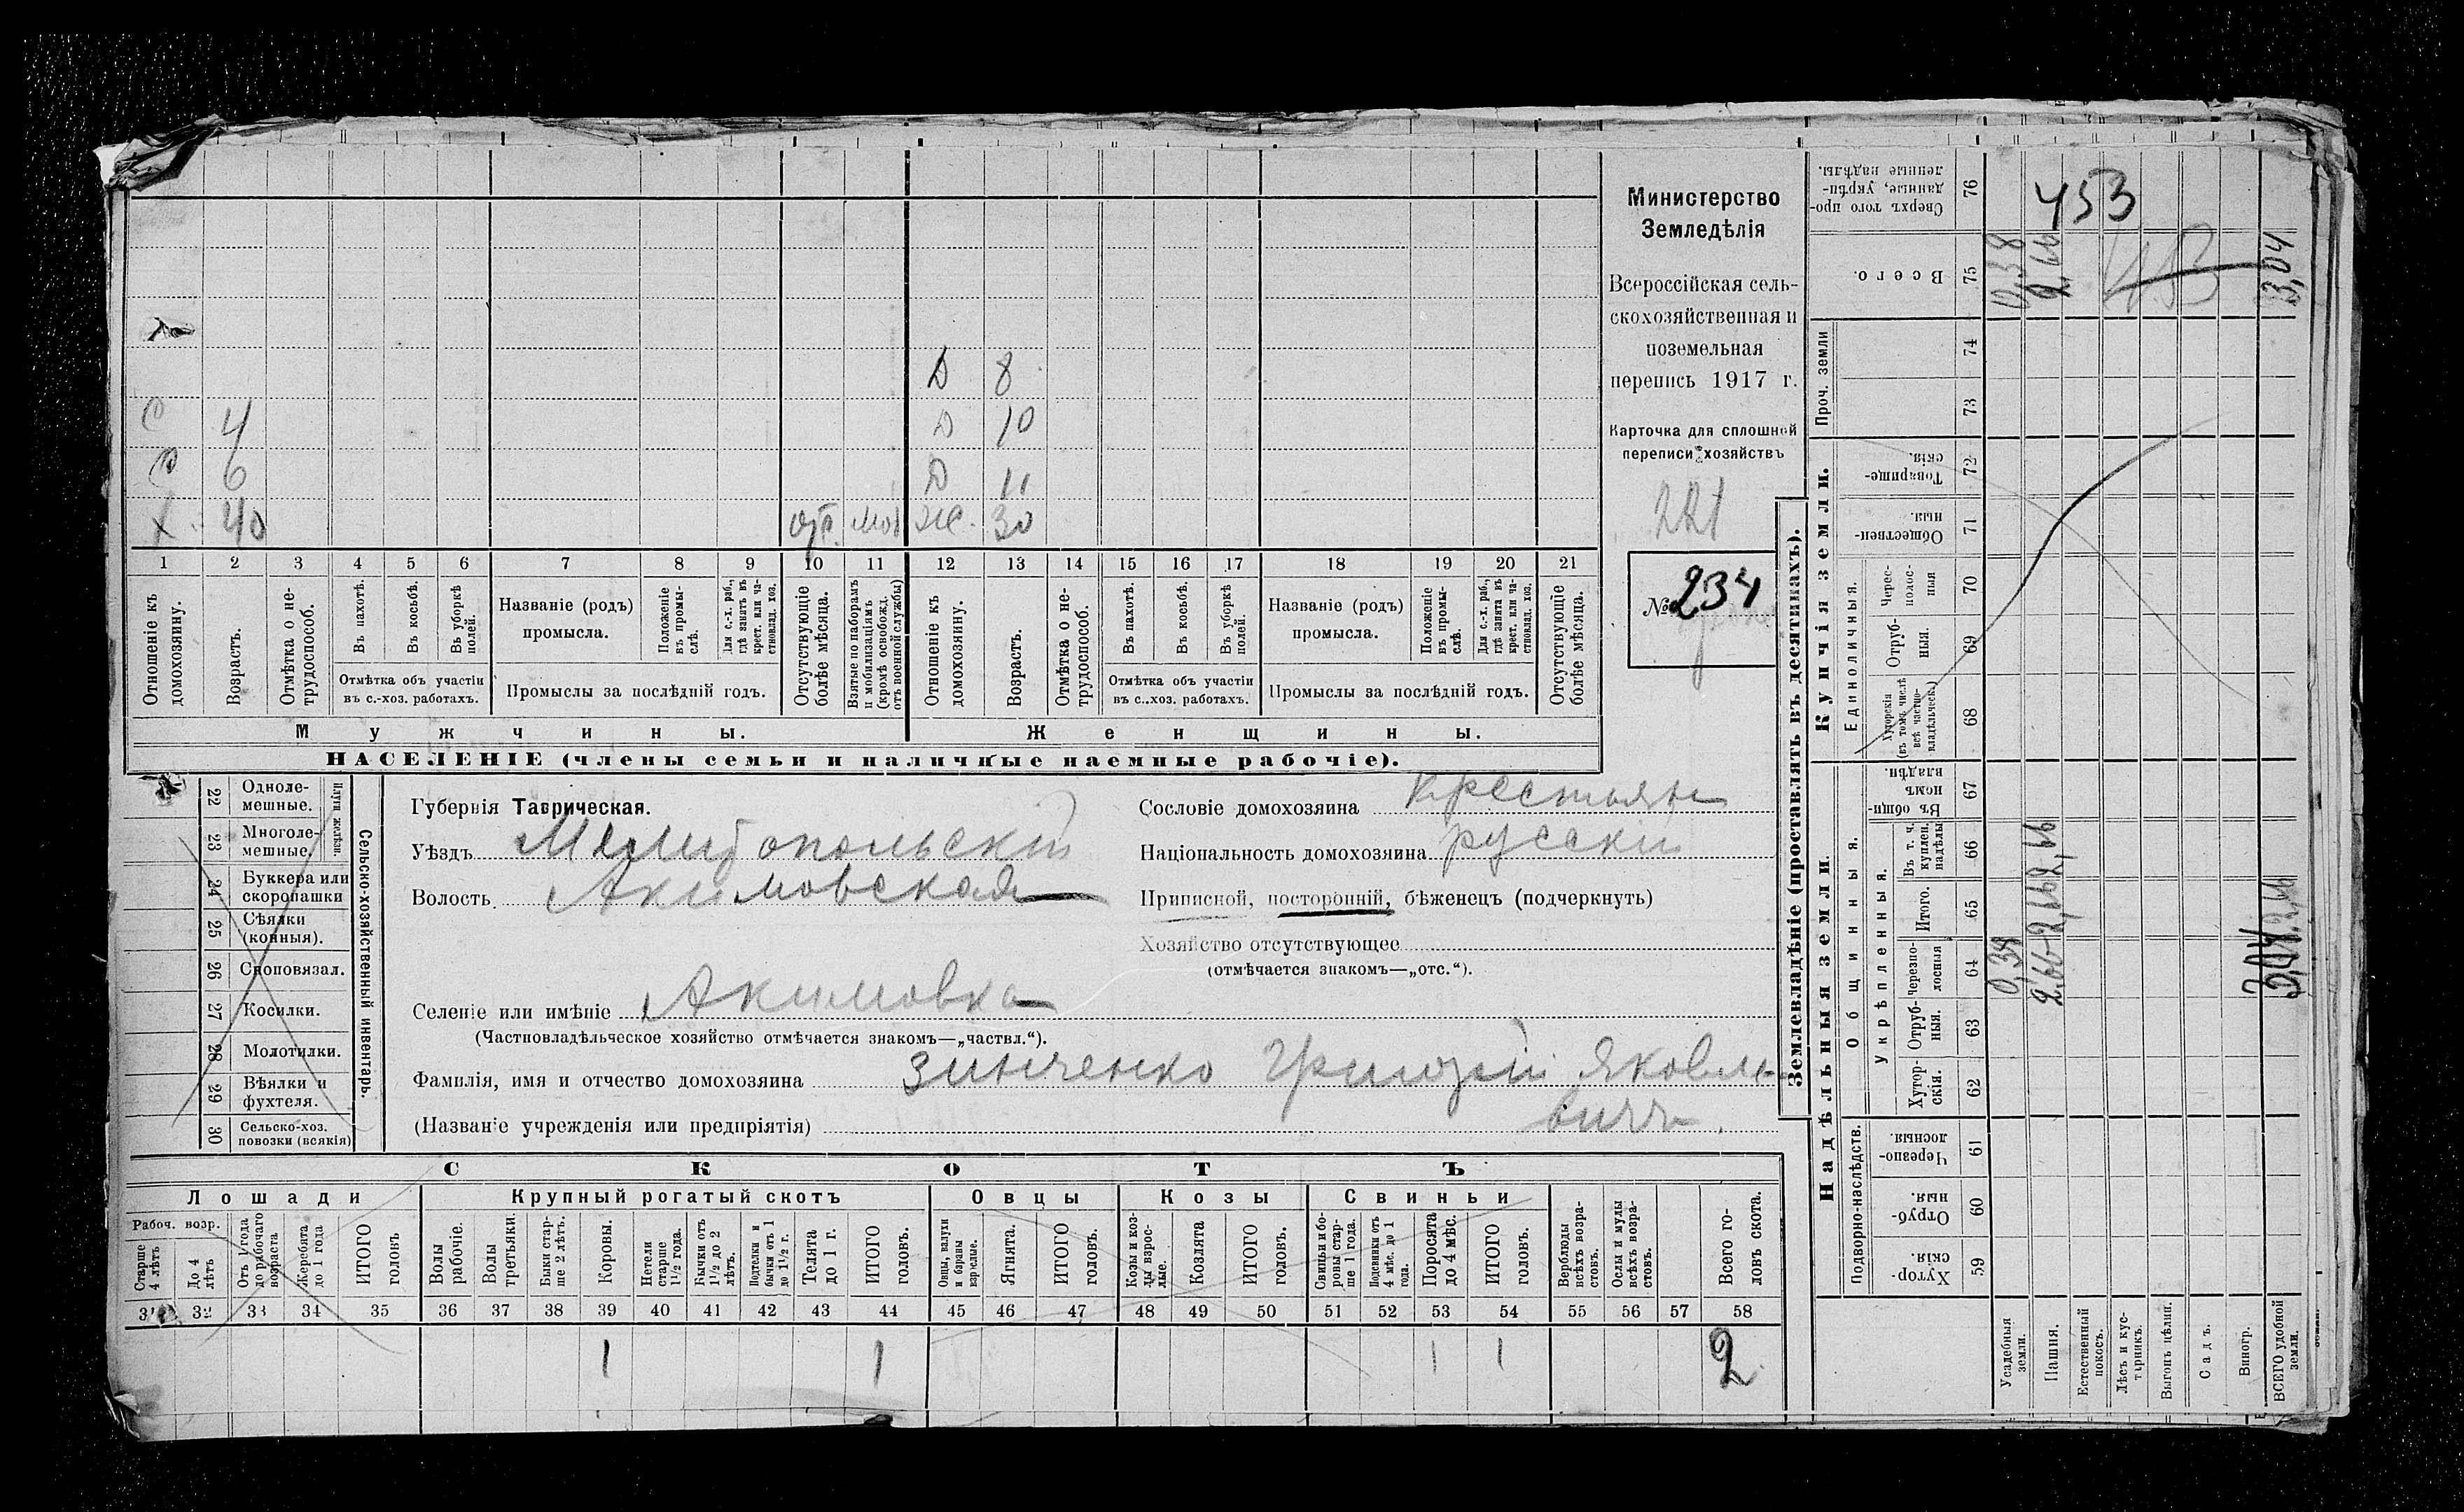 Министерство
Земледѣлія
Всероссійская сель-
скохозяйственная и
поземельная
перепись 1917 г.
Карточка для сплошной
переписи хозяйствъ
221
№ 234
Д 8
С 4 Д 10
С 6 Д 11
Х 40 отс. моб Ж. 30
1 2 3 4 5 6 7 8 9 10 11 12 13 14 15 16 17 18 19 20 21
Отношеніе къ домохозяину.
Возрастъ.
Отмѣтка о не-трудоспособ.
Въ пахотѣ.
Въ косьбѣ.
Въ уборкѣ полей.
Отмѣтка объ участіи въ с.-хоз. работахъ.
Названіе (родъ) промысла.
Положеніе въ промы-слѣ.
Для с.-х. раб., гдѣ занятъ въ крест. или ча-стновлад. хоз.
Промыслы за послѣдній годъ.
Отсутствующіе болѣе мѣсяца.
Взятые по наборамъ и мобилизаціямъ (кромѣ освобожд. отъ военной службы)
Отношеніе къ домохозяину.
Возрастъ.
Отмѣтка о не-трудоспособ.
Въ пахотѣ.
Въ косьбѣ.
Въ уборкѣ полей.
Отмѣтка объ участіи въ с.-хоз. работахъ.
Названіе (родъ) промысла.
Положеніе въ промы-слѣ.
Для с.-х. раб., гдѣ занята въ крест. или ча-стновлад. хоз.
Промыслы за послѣдній годъ.
Отсутствующіе болѣе мѣсяца.
Мужчины. Женщины.
НАСЕЛЕНІЕ (члены семьи и наличные наемные рабочіе).
22 Одноле-мешные.
23 Многоле-мешные.
Плуги желѣзн.
24 Буккера или скоропашки
25 Сѣялки (конныя).
26 Сноповязал.
27 Косилки.
28 Молотилки.
29 Вѣялки и фухтеля.
30 Сельско-хоз. повозки (всякія)
Сельско-хозяйственный инвентарь.
Губернія Таврическая.
Уѣздъ Мелитопольскій
Волость Акимовская
Селеніе или имѣніе Акимовка
(Частновладѣльческое хозяйство отмѣчается знакомъ—„частвл.“).
Фамилія, имя и отчество домохозяина Зинченко Григорій Яковле-
вичъ.
(Названіе учрежденія или предпріятія)
Сословіе домохозяина крестьян
Національность домохозяина русскій
Приписной, посторонній, бѣженецъ (подчеркнуть)
Хозяйство отсутствующее
(отмѣчается знакомъ—„отс.“).
СКОТЪ
Лошади Крупный рогатый скотъ Овцы Козы Свиньи
Рабоч. возр.
Старше 4 лѣтъ
До 4 лѣтъ
Отъ 1 года до рабочаго возраста
Жеребята до 1 года
ИТОГО головъ
Волы рабочіе.
Волы третьяки.
Быки стар-ше 2 лѣтъ.
Коровы.
Нетели старше 1½ года.
Бычки отъ 1½ до 2 лѣтъ.
Подтелки и бычки отъ 1 до 1½ г.
Телята до 1 г.
ИТОГО головъ.
Овцы, валухи и бараны взрослые.
Ягнята.
ИТОГО головъ.
Козы и коз-лы взрос-лые.
Козлята
ИТОГО головъ.
Свиньи и бо-ровы стар-ше 1 года.
Подсвинки отъ 4 мѣс. до 1 года.
Поросята до 4 мѣс.
ИТОГО головъ.
Верблюды всѣхъ возра-стовъ.
Ослы и мулы всѣхъ возра-стовъ.
Всего го-ловъ скота.
31 32 33 34 35 36 37 38 39 40 41 42 43 44 45 46 47 48 49 50 51 52 53 54 55 56 57 58
1 1 1 1 2
Землевладѣніе (проставлять въ десятинахъ).
Надѣльныя земли. Купчія земли. Проч. земли
Подворно-наслѣдств. Общинныя. Единоличныя.
Укрѣпленныя.
Хутор-скія. 59
Отруб-ныя. 60
Черезпо-лосныя. 61
Хутор-скія. 62
Отруб-ныя. 63
Черезпо-лосныя 64
Итого. 65
Въ т. ч. куплен. надѣлы 66
Въ общин-номъ владѣн. 67
Хуторскія (въ томъ числѣ всѣ частно-владѣльческ.) 68
Отруб-ныя. 69
Черес-полос-ныя 70
Обществен-ныя. 71
Товарище-скія. 72
73
74
Всего. 75
Сверхъ того про-данные, укрѣп-ленные надѣлы. 76
Усадебныя земли. 0,38 0,38
Пашня. 2,66 2,66 2,66 2,66
Естественный покосъ.
Лѣсъ и кус-тарникъ.
Выгонъ цѣлин.
Садъ.
Виногр.
ВСЕГО удобной земли. 3,04 2,66 3,04
453
453